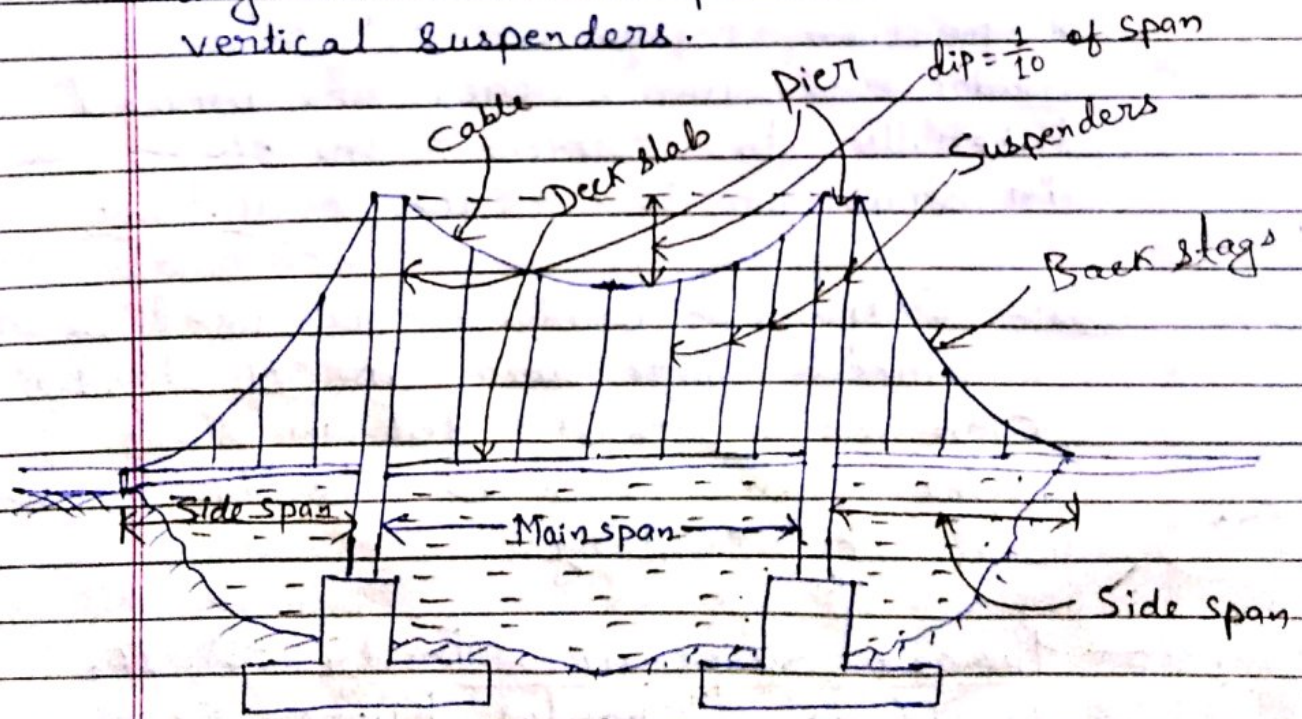 vertical suspenders.
dip = 1/10 of span
pier
cable
Deck slab
Suspenders
Back stags
Side span
Main span
Side span